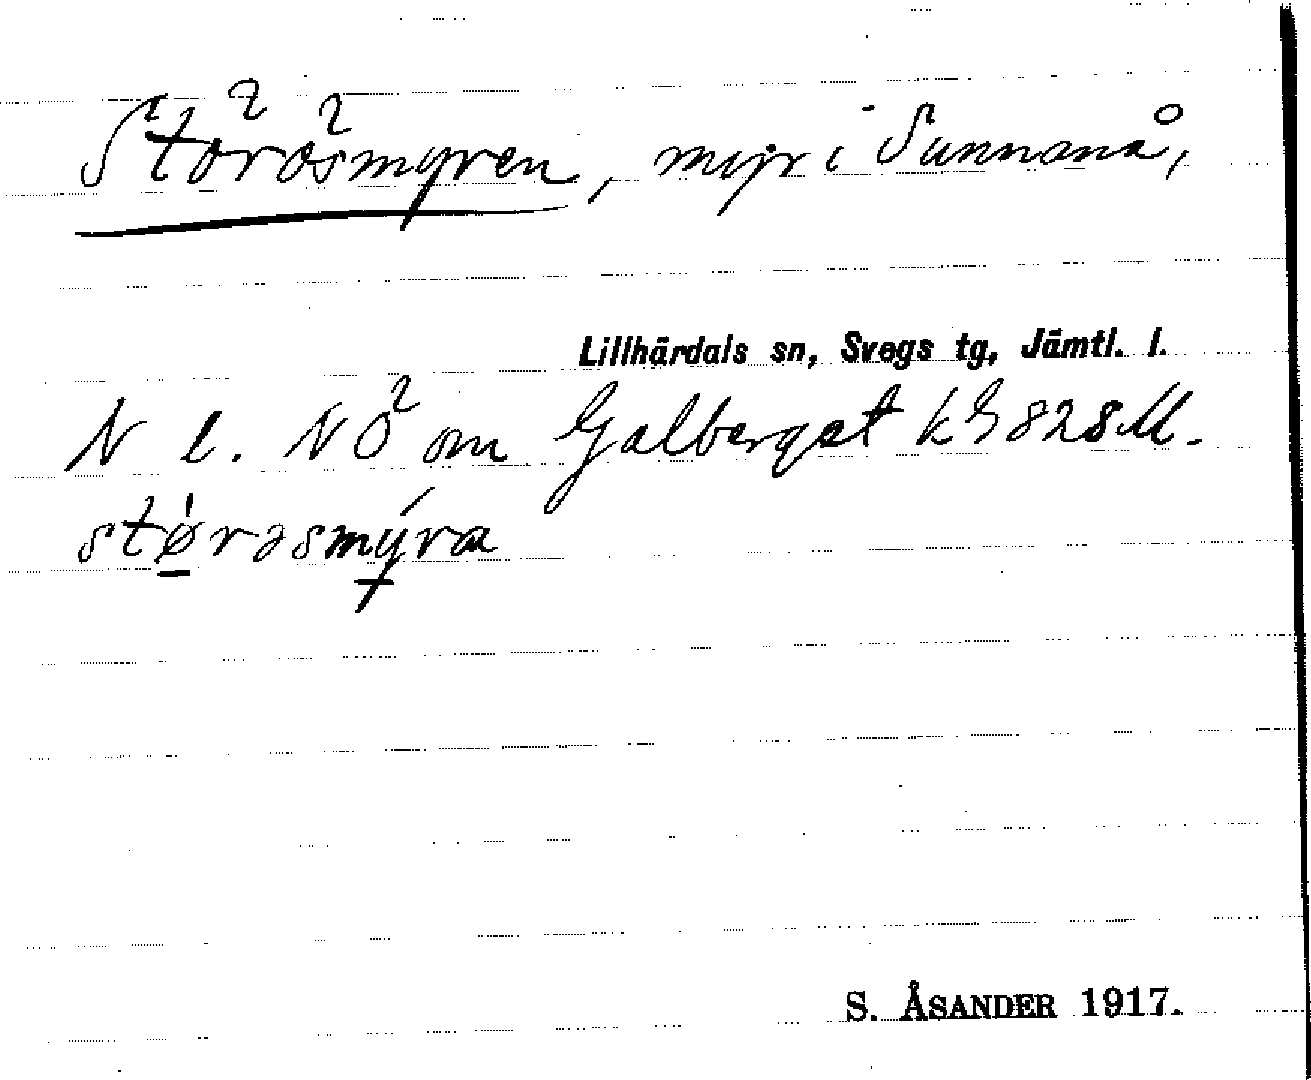 Störösmyren, myr i Sunnanå,
Lillhärdals sn, Svegs tg, Jämtl. l.
N l. NÖ om Galberget kG 828 M.
størəsmýra
S. ÅSANDER 1917.